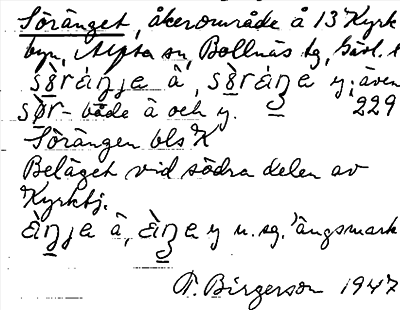 Söränget, åkerområde å 13 Kyrk
byn, Alfta sn, Bollnäs tg, Gävl. l
sø̀ráŋje ä, sø̀ráŋe y; även
sør- både ä och y. 229
Sörängen bls K
Beläget vid södra delen av
Kyrkbj.
àŋje ä, àŋe y n. sg. 'ängsmark
T. Birgerson 1947